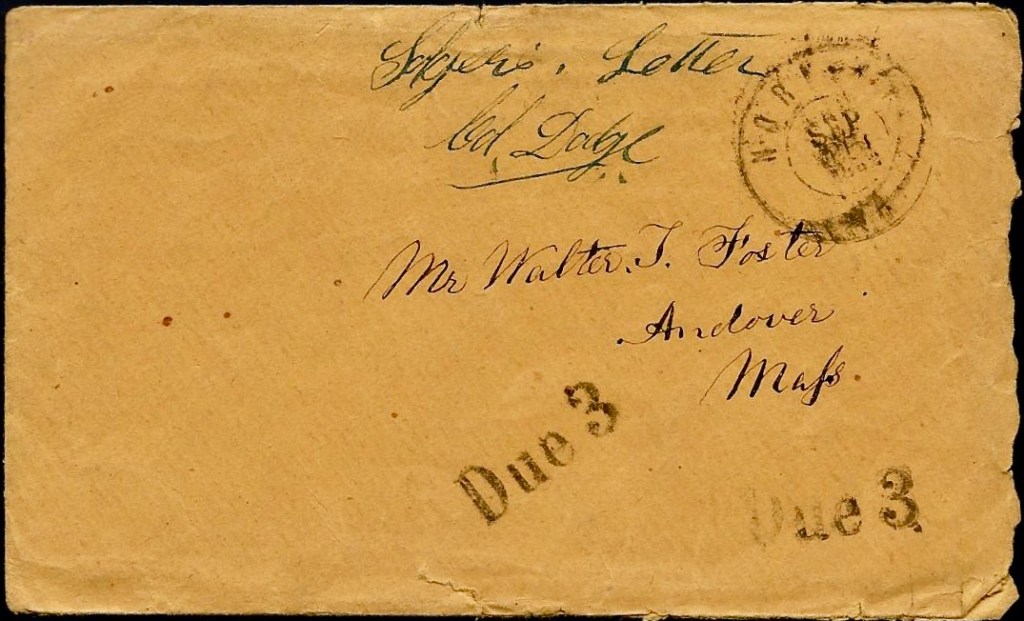 Soldier's Letter
Col Dodge
NORFOLK
SEP
VA
Mr Walter. T. Foster
Andover
Maſs.
Due 3
Due 3